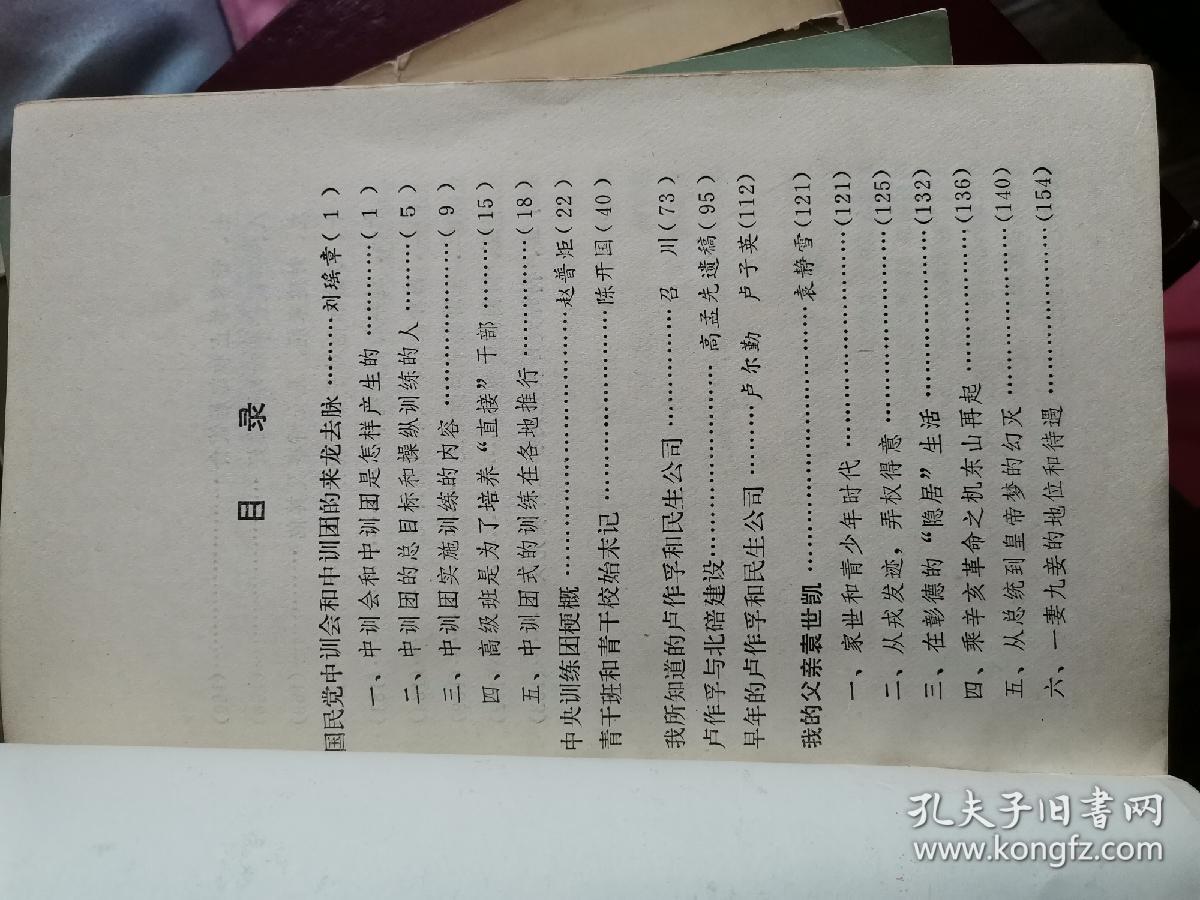 目 录
国民党中训会和中训团的来龙去脉 ………刘瑶章( 1 )
一、中训会和中训团是怎样产生的 …………( 1 )
二、中训团的总目标和操纵训练的人 ………( 5 )
三、中训团实施训练的内容 …………………( 9 )
四、高级班是为了培养“直接”干部 ………(15)
五、中训团式的训练在各地推行 ……………(18)
中央训练团梗概 ………………………………赵普炬(22)
青干班和青干校始末记 ………………………陈开国(40)
我所知道的卢作孚和民生公司 ………………召 川(73)
卢作孚与北碚建设…………………………高孟先遗稿(95)
早年的卢作孚和民生公司 ………卢尔勤 卢子英(112)
我的父亲袁世凯 ………………………………袁静雪(121)
一、家世和青少年时代 ………………………(121)
二、从戎发迹，弄权得意 ……………………(125)
三、在彰德的“隐居”生活 …………………(132)
四、乘辛亥革命之机东山再起 ………………(136)
五、从总统到皇帝梦的幻灭 …………………(140)
六、一妻九妾的地位和待遇 …………………(154)
孔夫子旧书网
www.kongfz.com